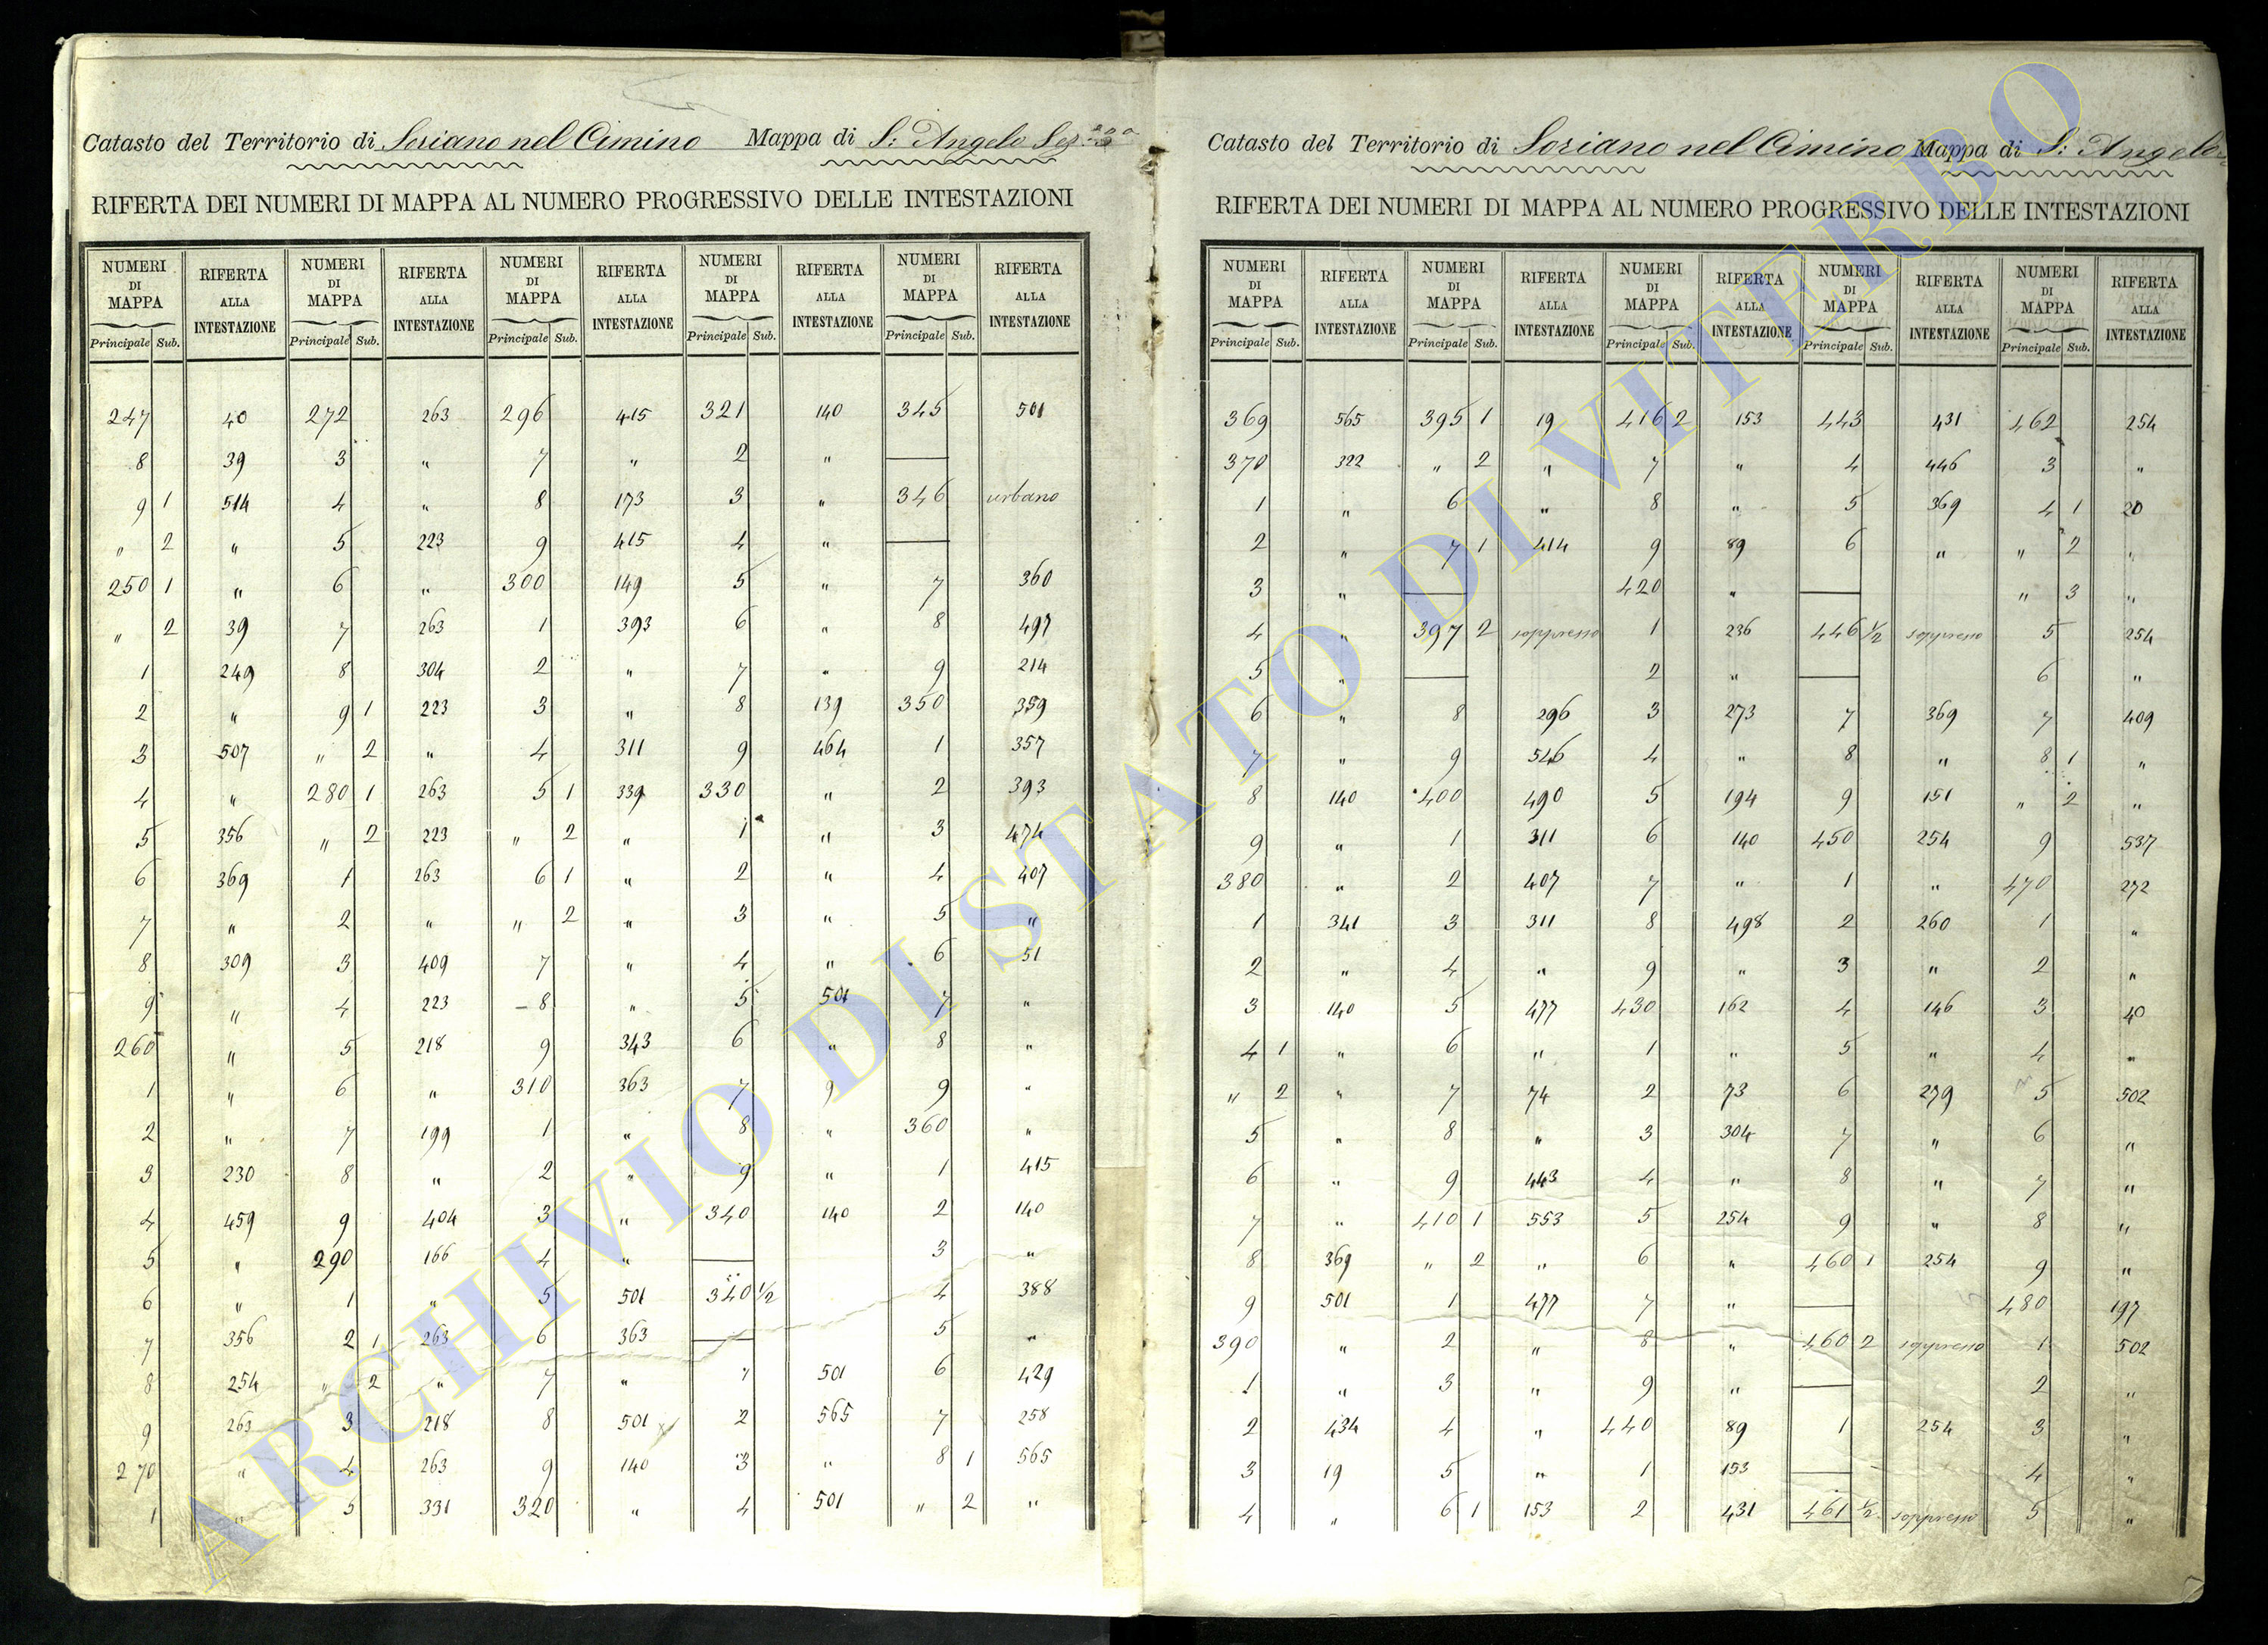 Catasto del Territorio di Soriano nel Cimino Mappa di S: Angelo Sez.
RIFERTA DEI NUMERI DI MAPPA AL NUMERO PROGRESSIVO DELLE INTESTAZIONI
NUMERI DI MAPPA RIFERTA ALLA INTESTAZIONE NUMERI DI MAPPA RIFERTA ALLA INTESTAZIONE NUMERI DI MAPPA RIFERTA ALLA INTESTAZIONE NUMERI DI MAPPA RIFERTA ALLA INTESTAZIONE NUMERI DI MAPPA RIFERTA ALLA INTESTAZIONE
Principale Sub. Principale Sub. Principale Sub. Principale Sub. Principale Sub.
247 40 272 263 296 415 321 140 345 501
8 39 3 " 7 " 2 "
9 1 514 4 " 8 173 3 " 346 urbano
" 2 " 5 223 9 415 4 "
250 1 " 6 " 300 149 5 " 7 360
" 2 39 7 263 1 393 6 " 8 497
1 249 8 304 2 " 7 " 9 214
2 " 9 1 223 3 " 8 139 350 359
3 507 " 2 " 4 311 9 464 1 357
4 " 280 1 263 5 1 339 330 " 2 393
5 356 " 2 223 " 2 " 1 " 3 474
6 369 1 263 6 1 " 2 " 4 407
7 " 2 " " 2 " 3 " 5 "
8 309 3 409 7 " 4 " 6 51
9 " 4 223 8 " 5 501 7 "
260 " 5 218 9 343 6 " 8 "
1 " 6 " 310 363 7 9 9 "
2 " 7 199 1 " 8 " 360 "
3 230 8 " 2 " 9 " 1 415
4 459 9 404 3 " 340 140 2 140
5 " 290 166 4 " 3 "
6 " 1 " 5 501 340 1/2 4 388
7 356 2 1 263 6 363 5 "
8 254 " 2 " 7 " 1 501 6 429
9 263 3 218 8 501 2 565 7 258
270 " 4 263 9 140 3 " 8 1 565
1 " 5 331 320 " 4 501 " 2 "
Catasto del Territorio di Soriano nel Cimino Mappa di S: Angelo
RIFERTA DEI NUMERI DI MAPPA AL NUMERO PROGRESSIVO DELLE INTESTAZIONI
NUMERI DI MAPPA RIFERTA ALLA INTESTAZIONE NUMERI DI MAPPA RIFERTA ALLA INTESTAZIONE NUMERI DI MAPPA RIFERTA ALLA INTESTAZIONE NUMERI DI MAPPA RIFERTA ALLA INTESTAZIONE NUMERI DI MAPPA RIFERTA ALLA INTESTAZIONE
Principale Sub. Principale Sub. Principale Sub. Principale Sub. Principale Sub.
369 565 395 1 19 416 2 153 443 431 462 254
370 322 " 2 " 7 " 4 446 3 "
1 " 6 " 8 " 5 369 4 1 20
2 " 7 1 414 9 89 6 " " 2 "
3 " 420 " " 3 "
4 " 397 2 soppresso 1 236 446 1/2 soppresso 5 254
5 " 2 " 6 "
6 " 8 296 3 273 7 369 7 409
7 " 9 546 4 " 8 " 8 1 "
8 140 400 490 5 194 9 151 " 2 "
9 " 1 311 6 140 450 254 9 537
380 " 2 407 7 " 1 " 470 272
1 341 3 311 8 498 2 260 1 "
2 " 4 " 9 " 3 " 2 "
3 140 5 477 430 162 4 146 3 40
4 1 " 6 " 1 " 5 " 4 "
" 2 " 7 74 2 73 6 279 5 502
5 " 8 " 3 304 7 " 6 "
6 " 9 443 4 " 8 " 7 "
7 " 410 1 553 5 254 9 " 8 "
8 369 " 2 " 6 " 460 1 254 9 "
9 501 1 477 7 " 480 197
390 " 2 " 8 " 460 2 soppresso 1 502
1 " 3 " 9 " 2 "
2 434 4 " 440 89 1 254 3 "
3 19 5 " 1 153 4 "
4 " 6 1 153 2 431 461 1/2 soppresso 5 "
ARCHIVIO DI STATO DI VITERBO